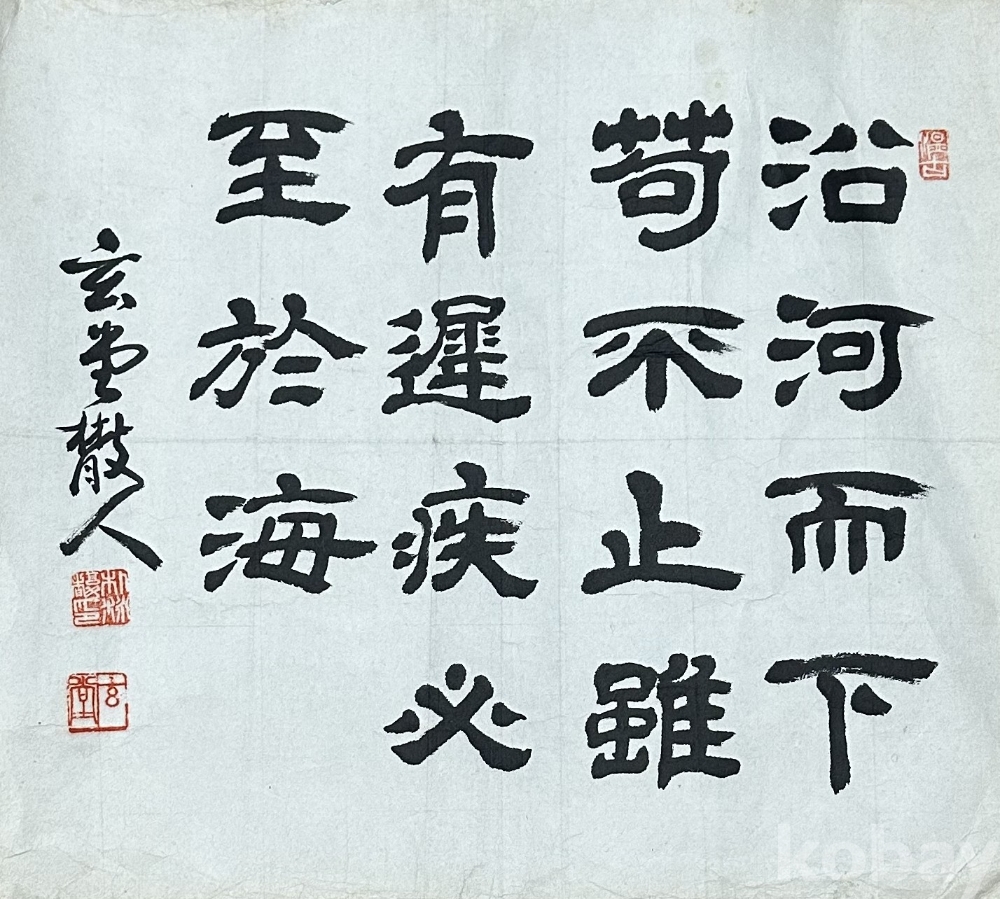 沿河而下
苟不止雖
有遲疾必
至於海
玄堂散人
玄堂
kobay